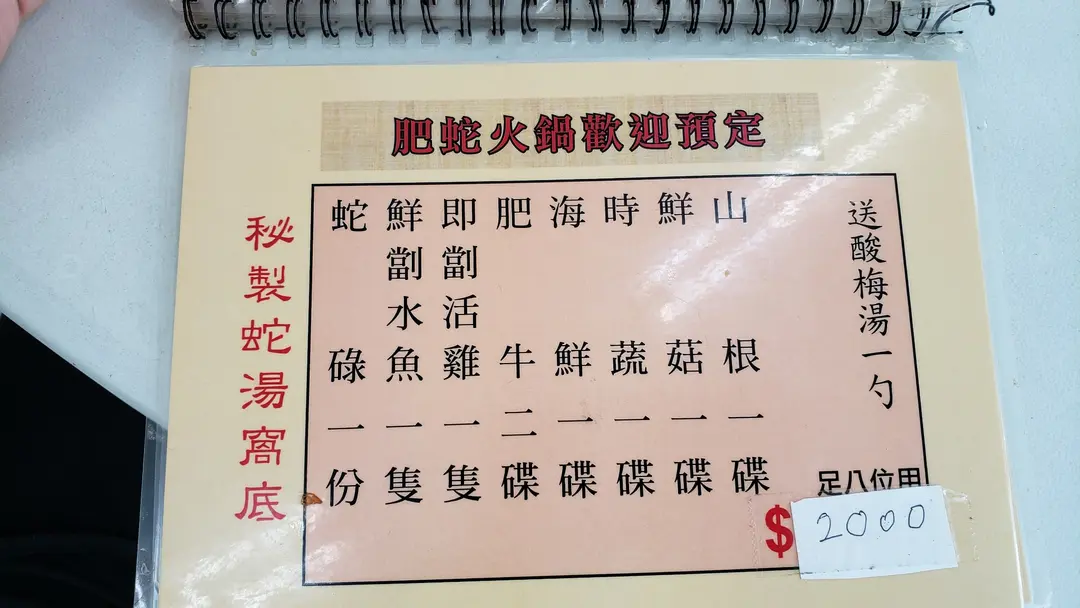 肥蛇火鍋歡迎預定
秘製蛇湯窩底
蛇碌一份
鮮劏水魚一隻
即劏活雞一隻
肥牛二碟
海鮮一碟
時蔬一碟
鮮菇一碟
山根一碟
送酸梅湯一勺
足八位用
$2000